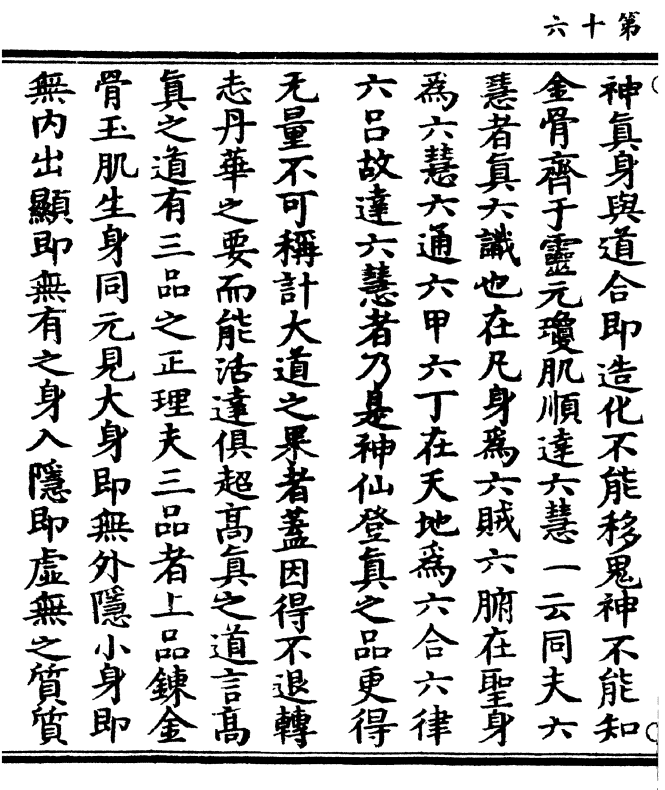 第十六
神真身與道合即造化不能移鬼神不能知
金骨齊于靈元瓊肌順達六慧一云同夫六
慧者真六識也在凡身爲六賊六腑在聖身
爲六慧六通六甲六丁在天地爲六合六律
六呂故達六慧者乃是神仙登真之品更得
无量不可稱計大道之果者蓋因得不退轉
志丹華之要而能活達俱超高真之道言高
真之道有三品之正理夫三品者上品鍊金
骨玉肌生身同元見大身即無外隱小身即
無內出顯即無有之身入隱即虛無之質質